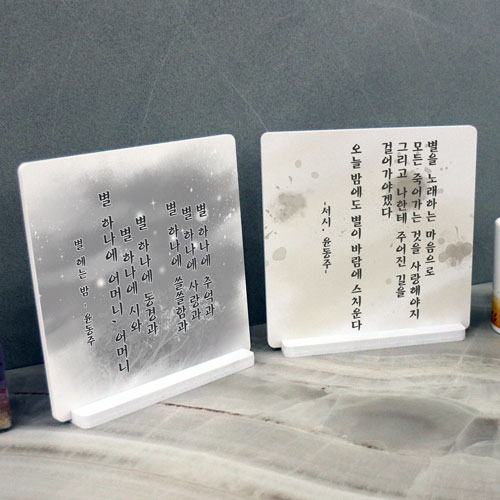 별 하나에 추억과
별 하나에 사랑과
별 하나에 쓸쓸함과
별 하나에 동경과
별 하나에 시와
별 하나에 어머니, 어머니
별 헤는 밤 - 윤동주
별을 노래하는 마음으로
모든 죽어가는 것을 사랑해야지
그리고 나한테 주어진 길을
걸어가야겠다
오늘 밤에도 별이 바람에 스치운다
-서시, 윤동주-